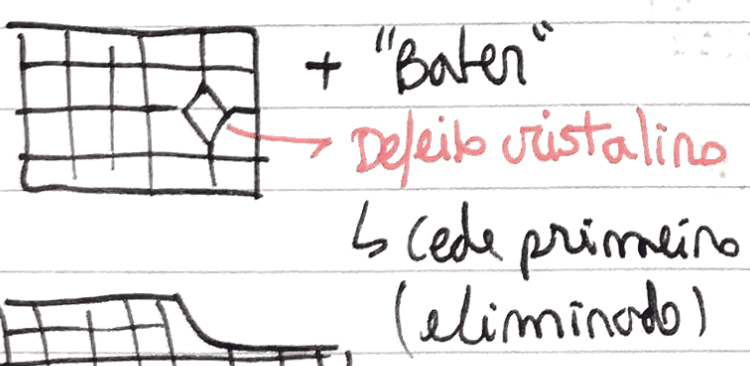 + "Bater"
Defeito cristalino
↳ Cede primeiro
(eliminado)